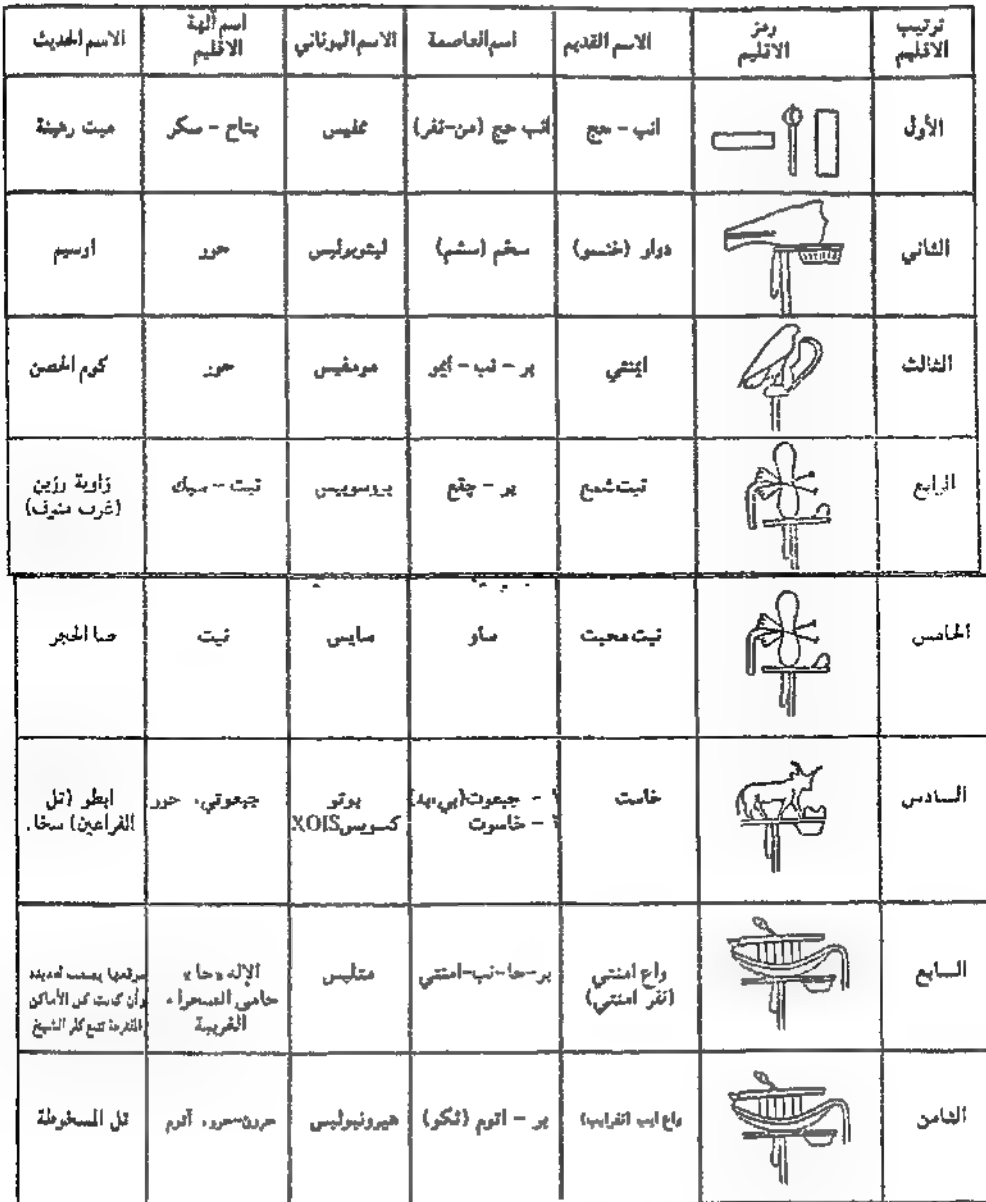 ترتيب الاقليم
رمز الاقليم
الاسم القديم
اسم العاصمة
الاسم اليوناني
اسم آلهة الاقليم
الاسم الحديث
الأول
انب - حج
انب حج (من-نفر)
ممفيس
بتاح - سكر
ميت رهينة
الثاني
دواو (خنسو)
سخم (سشم)
ليتوبوليس
حور
اوسيم
الثالث
ايمنتي
بر - نب - ايمو
مومفيس
حور
كوم الحصن
الرابع
نيت شمع
بر - جقع
بروسوبيس
نيت - سبك
زاوية رزين
(غرب منوف)
الخامس
نيت محيت
ساو
سايس
نيت
صا الحجر
السادس
خاست
١ - جبعوت (بي،به)
٢ - خاسوت
بوتو
كسويس XOIS
جبعوتي، حور
ابطو (تل
الفراعين) سخا.
السابع
واع امنتي
(نفر امنتي)
بر-حا-نب-امنتي
متليس
الإله «حا»
حامي الصحراء
الغربية
موقعها يصعب تحديده
وأن كانت كل الأماكن
المقترحة تتبع كفر الشيخ
الثامن
واع ايب (نفرايب)
بر - اتوم (ثكو)
هيرونبوليس
حرون-حور، آتوم
تل المسخوطة